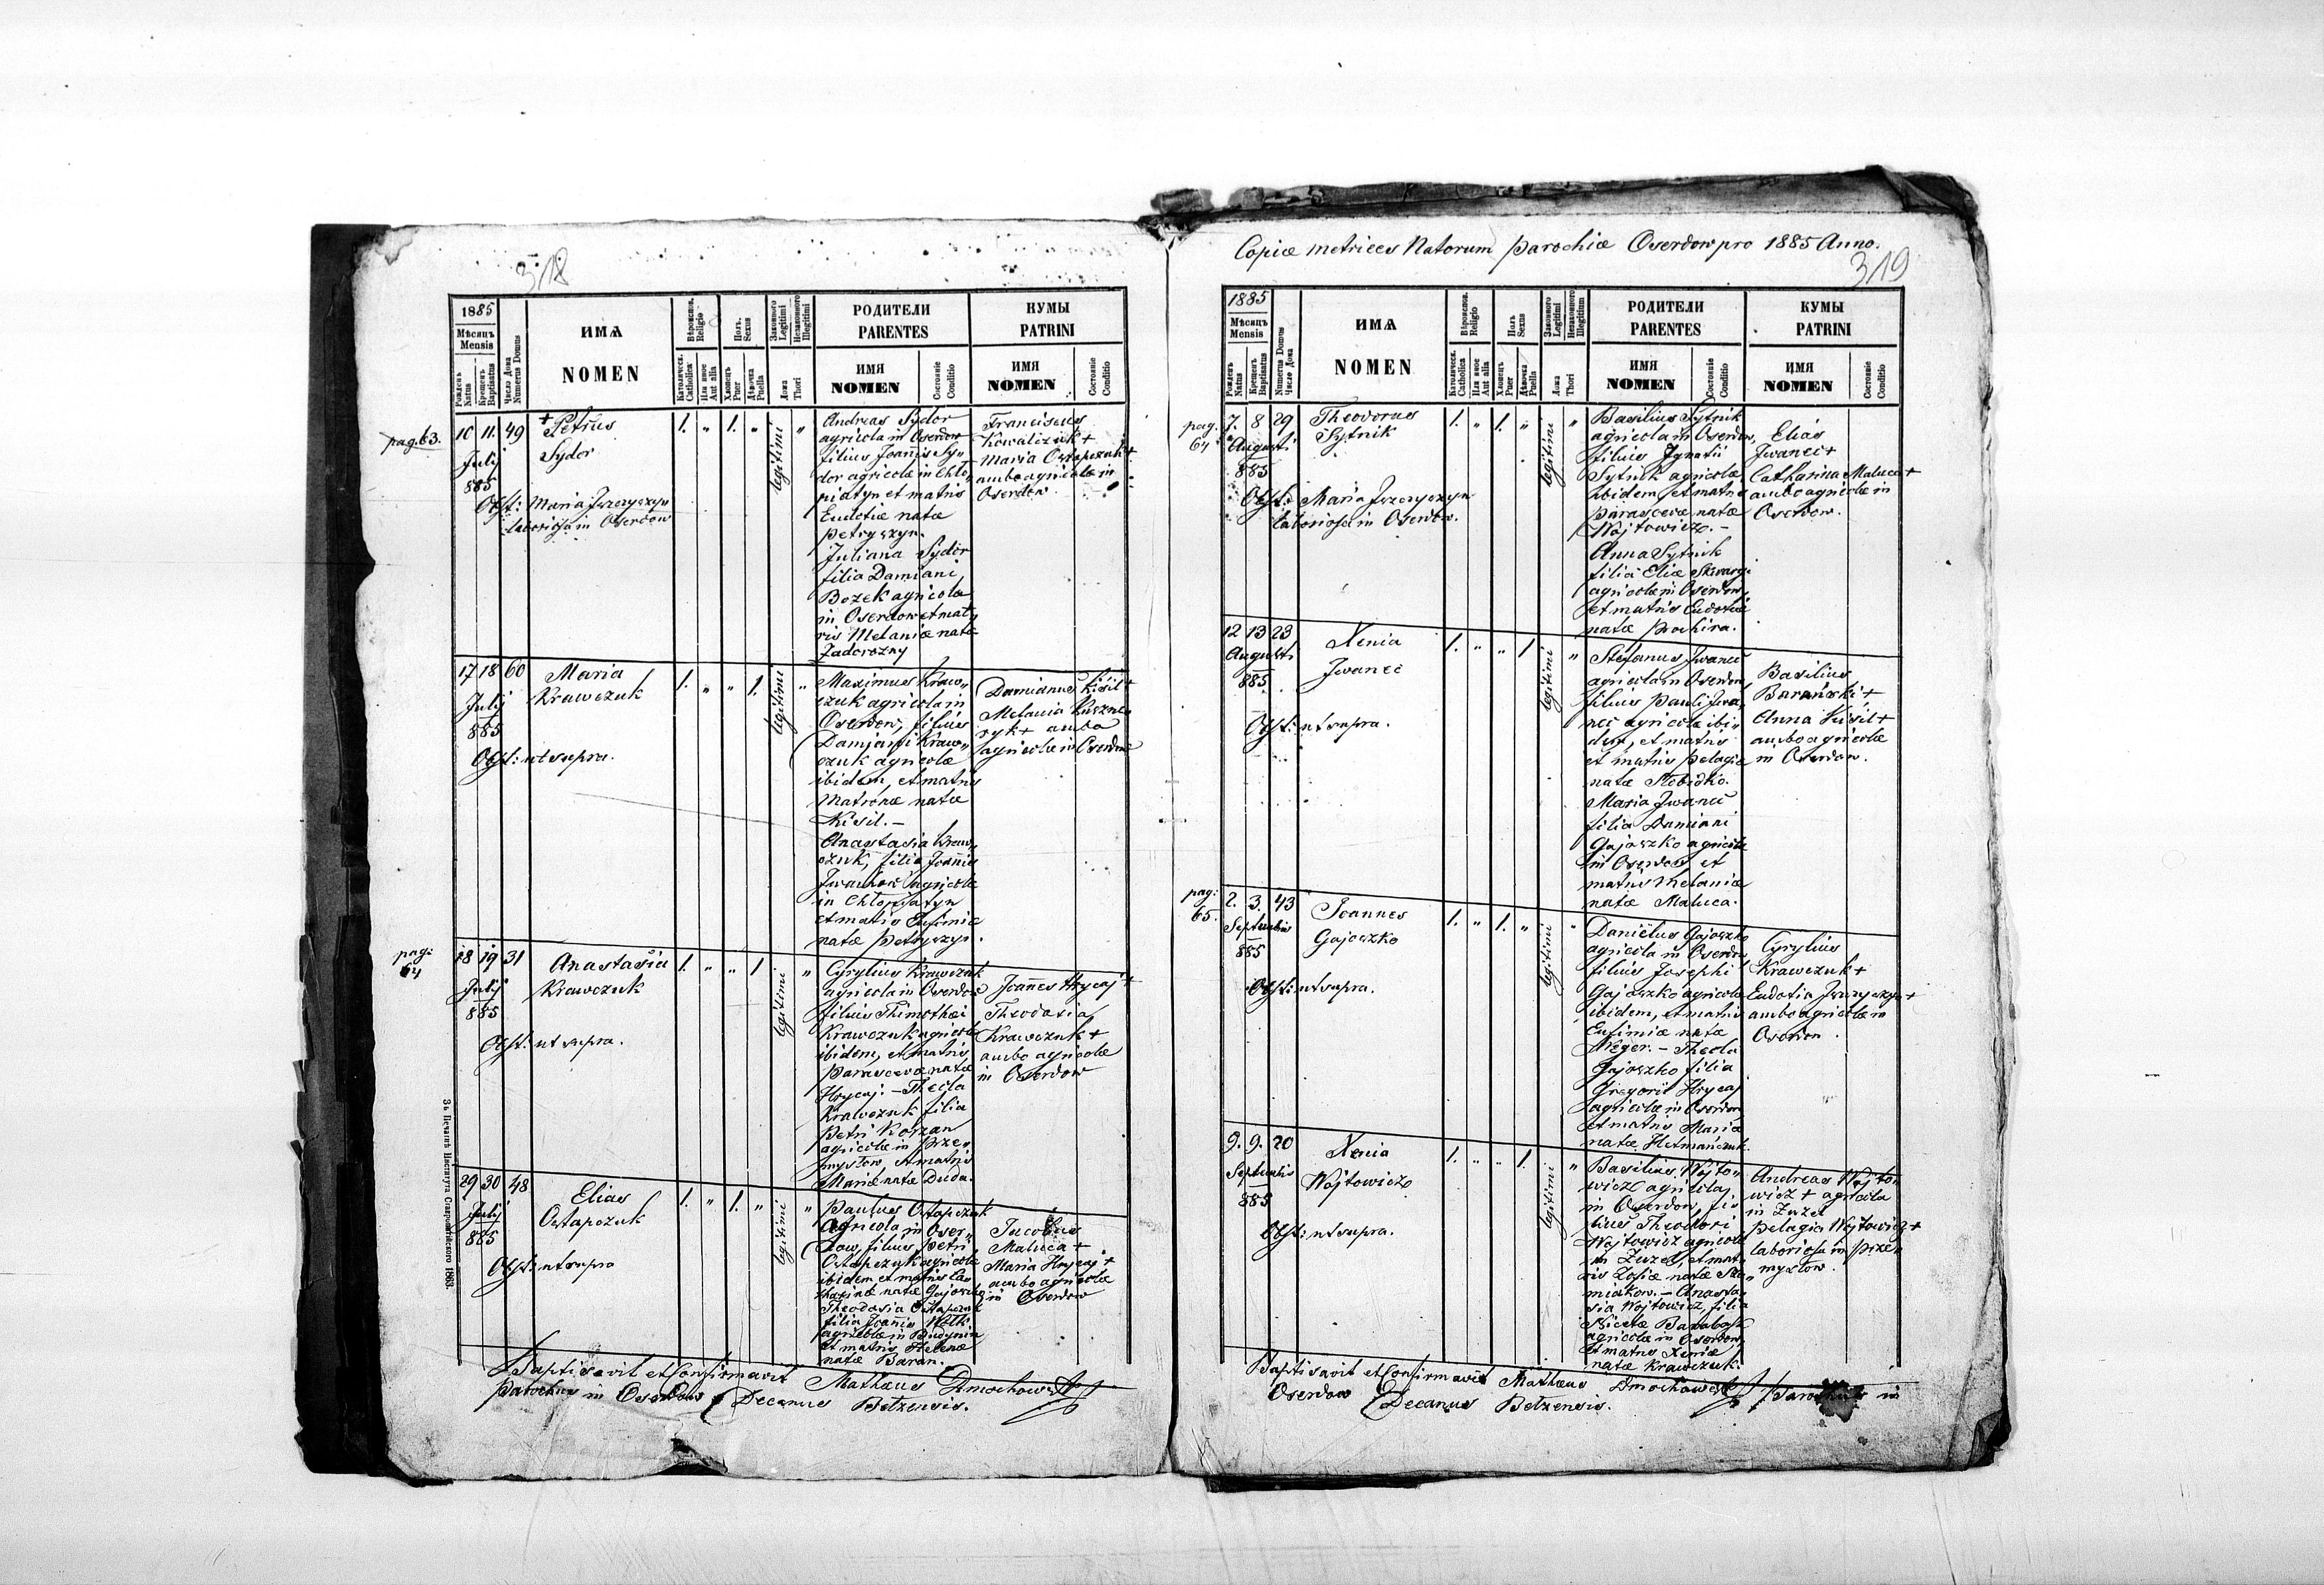 318
1885
Мѣсяцъ
Mensis
Рожденъ
Natus
Крещенъ
Baptisatus
Число Дома
Numerus Domus
ИМѦ
NOMEN
Вѣроиспов.
Religio
Католическ.
Catholica
Или иное
Aut alia
Полъ.
Sexus
Хлопецъ
Puer
Дѣвочка
Puella
Законного
Legitimi
Незаконного
Illegitimi
Ложа
Thori
РОДИТЕЛИ
PARENTES
ИМЯ
NOMEN
Состояніе
Conditio
КУМЫ
PATRINI
ИМЯ
NOMEN
Состояніе
Conditio
pag. 63.
10 11. 49 + Petrus 1. " 1. " legitimi "
Julij Sydor
885
Obst: Maria Jwczyszyn
laboriosa in Oserdow
Andreas Sydor
agricola in Oserdow
filius Joannis Sy"
dor agricolæ in Chło"
piatyn et matris
Eudotiæ natæ
Petryszyn.
Juliana Sydor
filia Damiani
Bożek agricolæ
in Oserdow et mat"
ris Melaniæ natæ
Zadorozny
Franciscus
Kowalczuk +
Maria Ostapczuk +
ambo agricolæ in
Oserdow
17 18 60 Maria 1. " " 1. legitimi "
Julij Krawczuk
885
Obst: ut supra.
Maximus Kraw"
czuk agricola in
Oserdow, filius
Damjani Kraw"
czuk agricolæ
ibidem, et matris
Matronæ natæ
Kisil. –
Anastasia Kraw"
czuk, filia Joannis
agricolæ
in Chłopiatyn
et matris Eufimiæ
natæ Petryszyn.
Damianus Kisil +
Melania
ryk + ambo
agricolæ in Oserdow
pag:
64
18 19 31 Anastasia 1. " " 1 legitimi "
Julij Krawczuk
885
Obst: ut supra.
Cyrylius Krawczuk
agricola in Oserdow
filius Thimothæi
Krawczuk agricolæ
ibidem, et matris
Parascevæ natæ
Hrycaj. – Thecla
Krawczuk filia
Petri Koszan
agricolæ in Prze"
mysłow et matris
Mariæ natæ Duda.
Joannes Hrycaj +
Theodosia
Krawczuk +
ambo agricolæ
in Oserdow
29 30 48 Elias 1. " 1. " legitimi "
Julij Ostapczuk
885
Obst: ut supra
Paulus Ostapczuk
agricola in Oser"
dow, filius Petri
Ostapczuk agricolæ
ibidem et matris Ca"
tharinæ natæ Gajoszko
Theodosia Ostapczuk
filia Joannis Wołk
agricolæ in Budynin
et matris Helenæ
natæ Baran.
Jacobus
Maluca +
Maria Hrycaj +
ambo agricolæ
in Oserdow
Baptisavit et Confirmavit Mathæus Dmochowski
parochus in Oserdow Decanus Bełzensis.
Зъ Печатнѣ Института Ставропигіского 1863.
Copiæ metrices Natorum parochiæ Oserdow pro 1885 Anno.
319
1885
Мѣсяцъ
Mensis
Рожденъ
Natus
Крещенъ
Baptisatus
Numerus Domus
Число Дома
ИМѦ
NOMEN
Вѣроиспов.
Religio
Католическ.
Catholica
Или иное
Aut alia
Полъ
Sexus
Хлопецъ
Puer
Дѣвочка
Puella
Законного
Legitimi
Незаконного
Illegitimum
Ложа
Thori
РОДИТЕЛИ
PARENTES
ИМЯ
NOMEN
Состояніе
Conditio
КУМЫ
PATRINI
ИМЯ
NOMEN
Состояніе
Conditio
pag.
64
7. 8 29 Theodorus 1. " 1. " legitimi "
Augusti Sytnik
885
Obst: Maria Jwczyszyn
laboriosa in Oserdow.
Basilius Sytnik
agricola in Oserdow,
filius Jgnatii
Sytnik agricolæ
ibidem, et matris
Parascevæ natæ
Wojtowicz. –
Anna Sytnik
filia Eliæ Skwargi
agricolæ in Oserdow,
et matris Eudotiæ
natæ Prochira.
Elias
Jwanec +
Catharina Maluca +
ambo agricolæ in
Oserdow.
12 13 23 Xenia 1. " " 1 legitimi "
Augusti Jwanec
885
Obst: ut supra.
Stefanus Jwanec
agricola in Oserdow,
filius Pauli Jwa"
nec agricolæ ibi"
dem, et matris
et matris Pelagiæ
natæ Słobidko.
Maria Jwanec
filia Damiani
Gajoszko agricolæ
in Oserdow et
matris Melaniæ
natæ Maluca.
Basilius
Barański +
Anna Kisil +
ambo agricolæ
in Oserdow.
pag:
65.
2. 3. 43 Joannes 1. " 1. " legitimi "
Septembris Gajoszko
885
Obst: ut supra.
Daniełus Gajoszko
agricola in Oserdow
filius Josephi
Gajoszko agricolæ
ibidem, et matris
Eufimiæ natæ
Weger. – Thecla
Gajoszko filia
Gregorii Hrycaj
agricolæ in Oserdow,
et matris Mariæ
natæ Hetmańczuk.
Cyrylius
Krawczuk +
Eudotia Jwczyszyn +
ambo agricolæ in
Oserdow.
9. 9. 20 Xenia 1. " " 1. legitimi "
Septembris Wojtowicz
885
Obst: ut supra.
Basilius Wojto"
wicz agricola
in Oserdow, fi"
lius Theodori
Wojtowicz agricolæ
in Żużel, et mat"
ris Zofiæ natæ
miakow. – Anasta"
sia Wojtowicz, filia
Nicetæ Barabasz
agricolæ in Oserdow,
et matris Xeniæ
natæ Krawczuk.
Andreas Wojto"
wicz + agricola
in Żużel
Pelagia Wojtowicz +
laboriosa in Prze"
mysłow.
Baptisavit et Confirmavit Mathæus Dmochowski Parochus in
Oserdow Decanus Bełzensis.